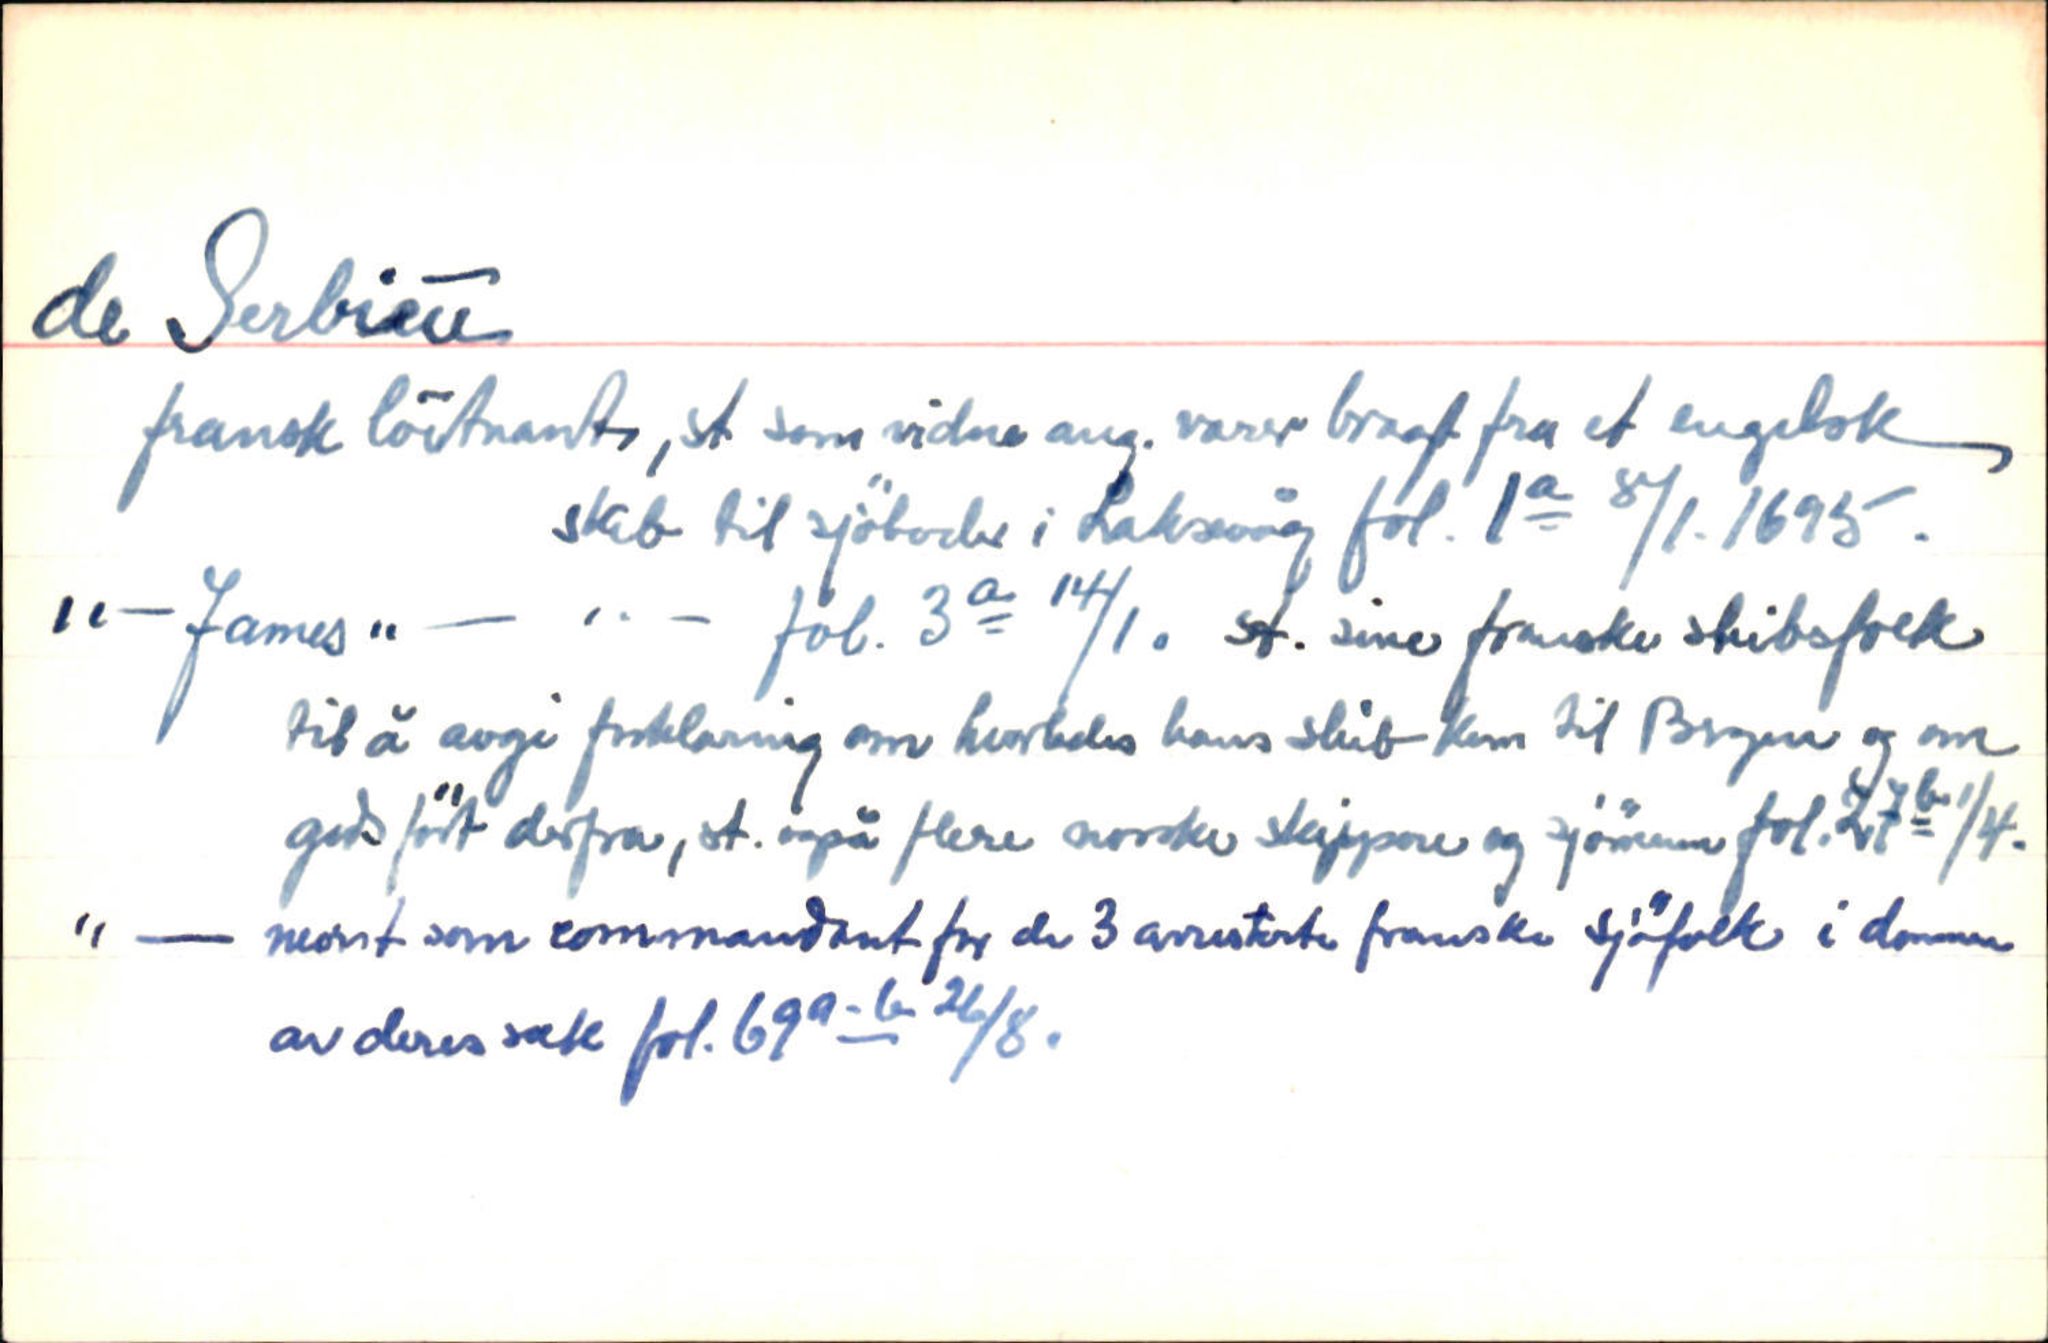 de Serbieu
fransk löitnant, st som vidne ang. varer bragt fra et engelsk
skib til sjöboder i Laksevåg fol. 1a 8/1. 1695.
" — James " — " — fol. 3a 14/1. st. sine franske skibsfolk
til å avgi forklaring om hvorledes hans skib kom til Bergen og om
gods fört derfra, st. også flere norske skippere og sjömenn fol. 27b 1/4.
" — nevnt som commandant for de 3 arresterte franske sjöfolk i dommen
av deres sak fol. 69a-b 26/8.